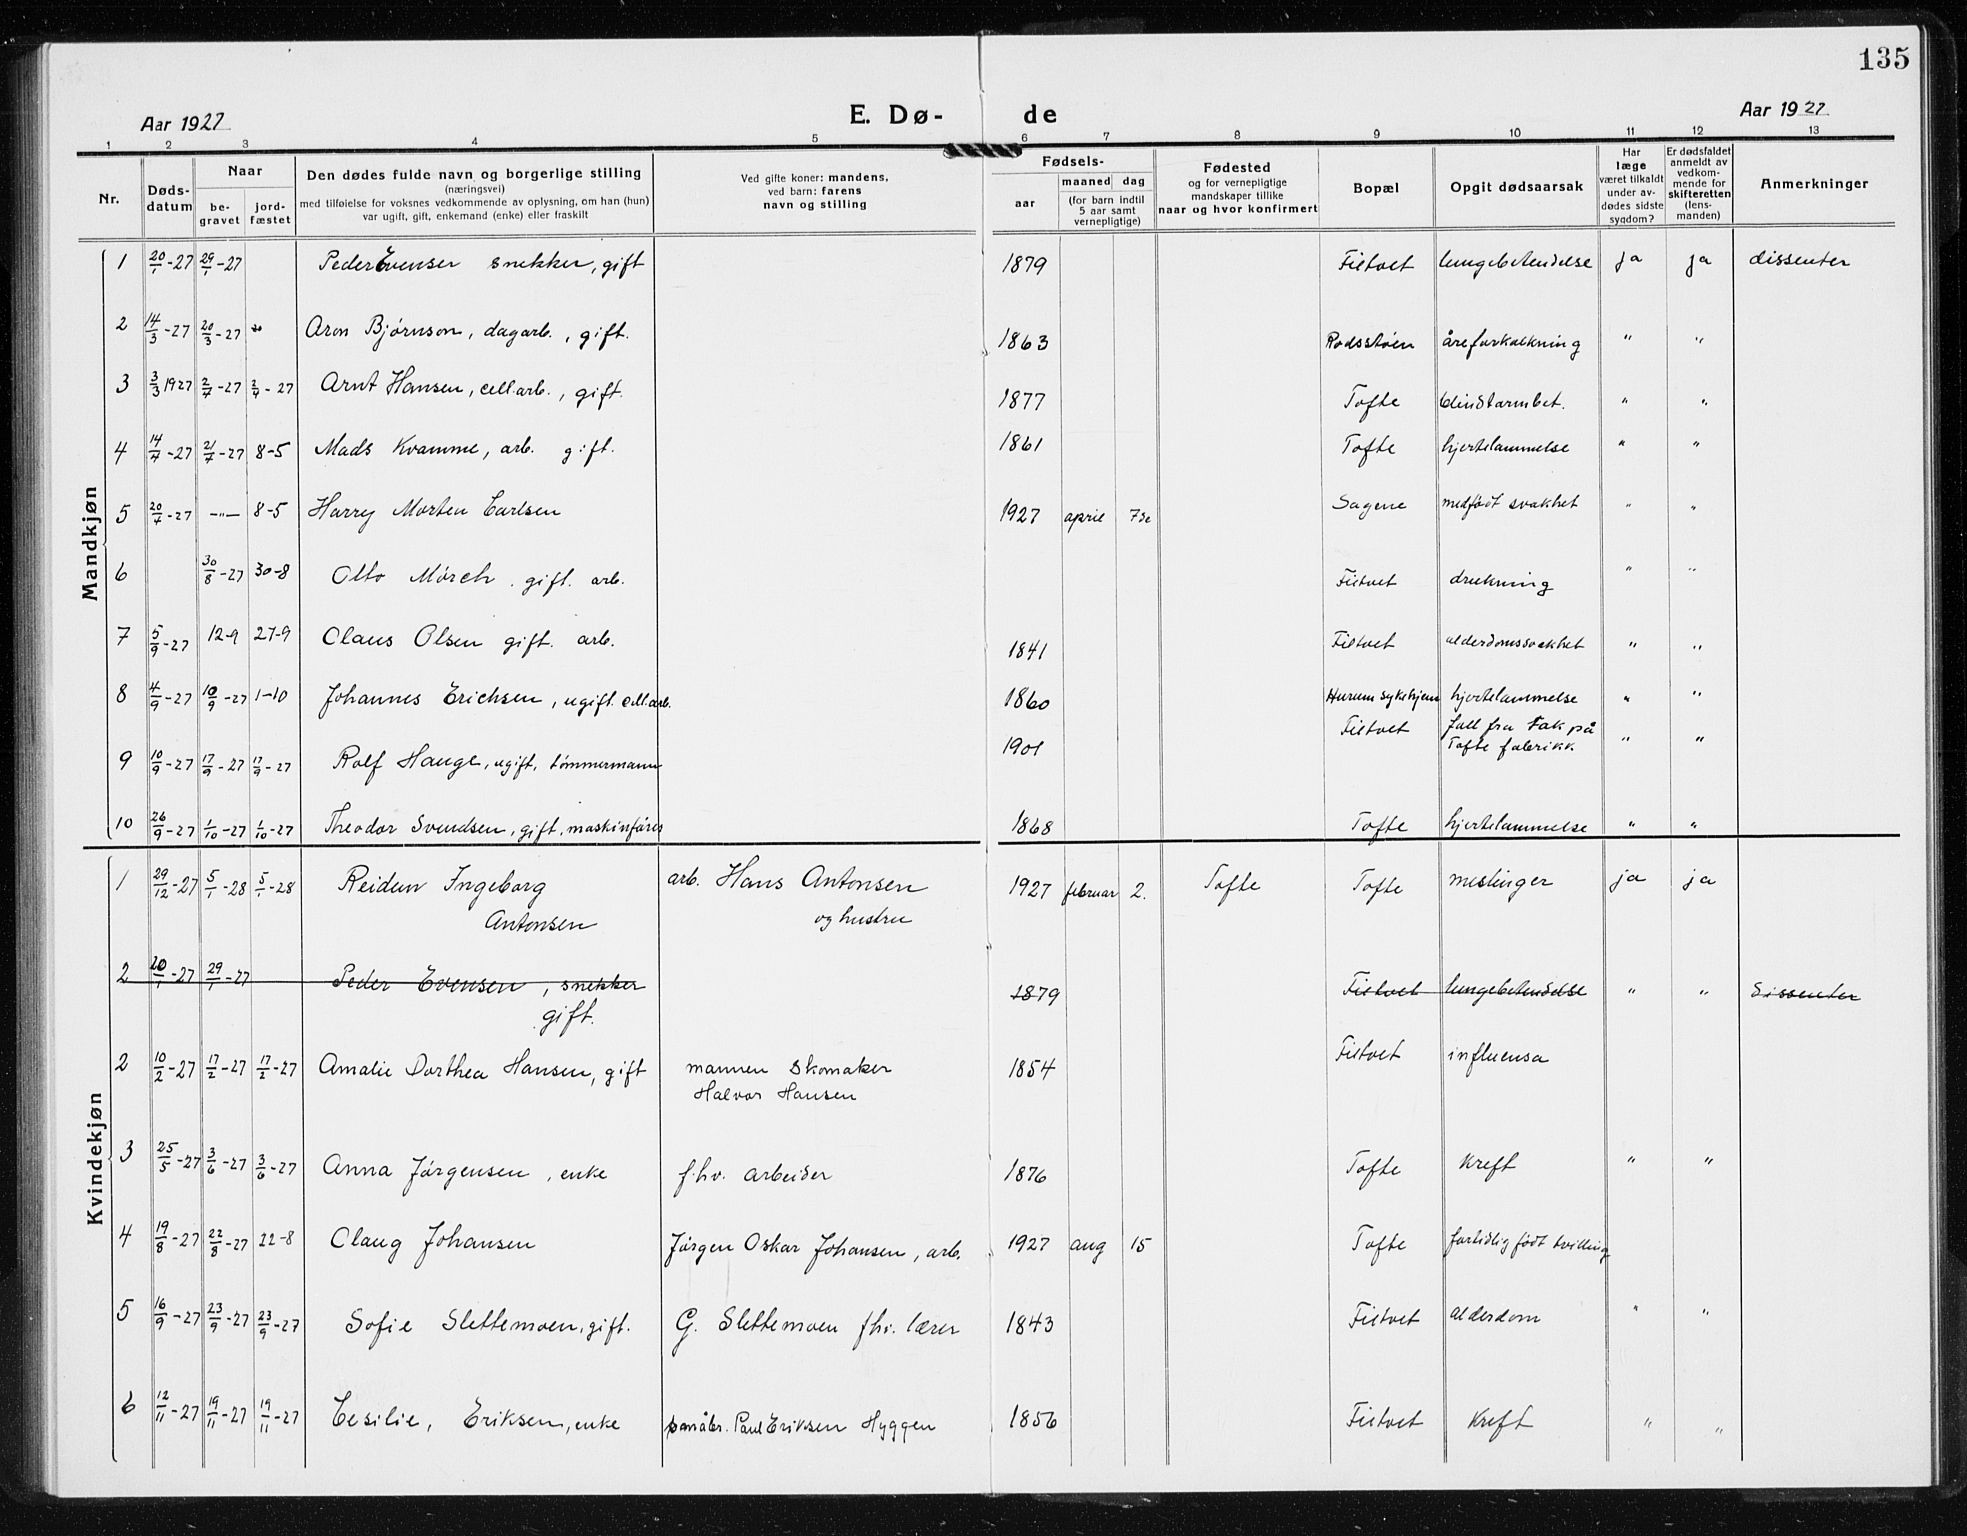 135
Aar 1927 E. Dø- de Aar 1927
1 2 3 4 5 6 7 8 9 10 11 12 13
Nr. Døds-datum Naar be-gravet jord-fæstet Den dødes fulde navn og borgerlige stilling (næringsvei) med tilføielse for voksnes vedkommende av oplysning, om han (hun) var ugift, gift, enkemand (enke) eller fraskilt Ved gifte koner: mandens, ved barn: farens navn og stilling Fødsels- aar maaned dag (for barn indtil 5 aar samt vernepligtige) Fødested og for vernepligtige mandskaper tillike naar og hvor konfirmert Bopæl Opgit dødsaarsak Har læge været tilkaldt under av-dødes sidste sygdom? Er dødsfaldet anmeldt av vedkom-mende for skifteretten (lens-manden) Anmerkninger
Mandkjøn
1 20/1-27 29/1-27 Peder Evensen snekker, gift 1879 Filtvet lungebetendelse ja ja dissenter
2 14/3-27 20/3-27 Aron Bjørnson, dagarb., gift. 1863 Rødsstøen åreforkalkning " "
3 3/3 1927 2/4-27 2/4-27 Arnt Hansen, cell.arb., gift. 1877 Tofte blindtarmbet. " "
4 14/4-27 21/4-27 8-5 Mads Kvamme, arb. gift. 1861 Tofte hjertelammelse " "
5 20/4-27 -"- 8-5 Harry Morten Carlsen 1927 april 7de Sagene medfødt svakhet " "
6 30/8-27 30-8 Otto Mörch. gift. arb. Filtvet drukning " "
7 5/9-27 12-9 27-9 Claus Olsen gift. arb. 1841 Filtvet alderdomssvakhet " "
8 4/9-27 10/9-27 1-10 Johannes Erichsen, ugift. cell.arb. 1860 Hurum sykehjem hjertelammelse " "
9 10/9-27 17/9-27 17/9-27 Rolf Hauge, ugift, tømmermann 1901 Filtvet fall fra tak på
Tofte fabrikk " "
10 26/9-27 1/10-27 1/10-27 Theodor Svendsen, gift, maskinfører 1868 Tofte hjertelammelse " "
Kvindekjøn
1 29/12-27 5/1-28 5/1-28 Reidun Ingeborg arb. Hans Antonsen 1927 februar 2. Tofte Tofte meslinger ja ja
Antonsen og hustru
2 20/1-27 29/1-27 Peder Evensen, snekker 1879 Filtvet lungebetendelse " " dissenter
gift.
2 10/2-27 17/2-27 17/2-27 Amalie Dorthea Hansen, gift mannen skomaker 1854 Filtvet influensa
Halvor Hansen
3 25/5-27 3/6-27 3/6-27 Anna Jørgensen, enke f.hv. arbeider 1876 Tofte kreft " "
4 19/8-27 22/8-27 22-8 Olaug Johansen Jørgen Oskar Johansen, arb. 1927 aug 15 Tofte fortidlig født tvilling
5 16/9-27 23/9-27 23/9-27 Sofie Slettemoen, gift. G. Slettemoen fhv. lærer 1843 Filtvet alderdom " "
6 12/11-27 19/11-27 19/11-27 Cesilie, Eriksen, enke småbr. Paul Eriksen Hyggen 1856 Filtvet kreft " "